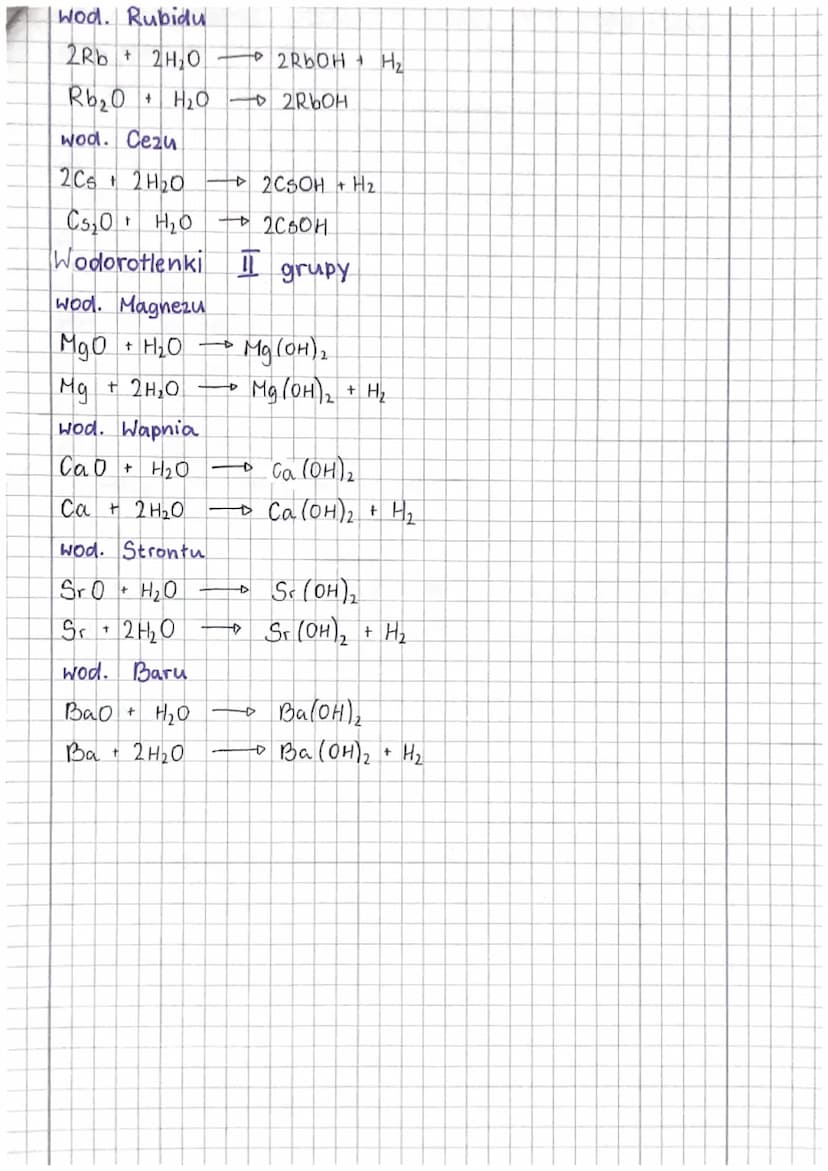 wod. Rubidu
2Rb + 2H₂O → 2RbOH + H₂
Rb₂O + H₂O → 2RbOH
wod. Cezu
2Cs + 2H₂O → 2CsOH + H₂
Cs₂O + H₂O → 2CsOH
Wodorotlenki II grupy
wod. Magnezu
MgO + H₂O → Mg(OH)₂
Mg + 2H₂O → Mg(OH)₂ + H₂
wod. Wapnia
CaO + H₂O → Ca(OH)₂
Ca + 2H₂O → Ca(OH)₂ + H₂
wod. Strontu
SrO + H₂O → Sr(OH)₂
Sr + 2H₂O → Sr(OH)₂ + H₂
wod. Baru
BaO + H₂O → Ba(OH)₂
Ba + 2H₂O → Ba(OH)₂ + H₂